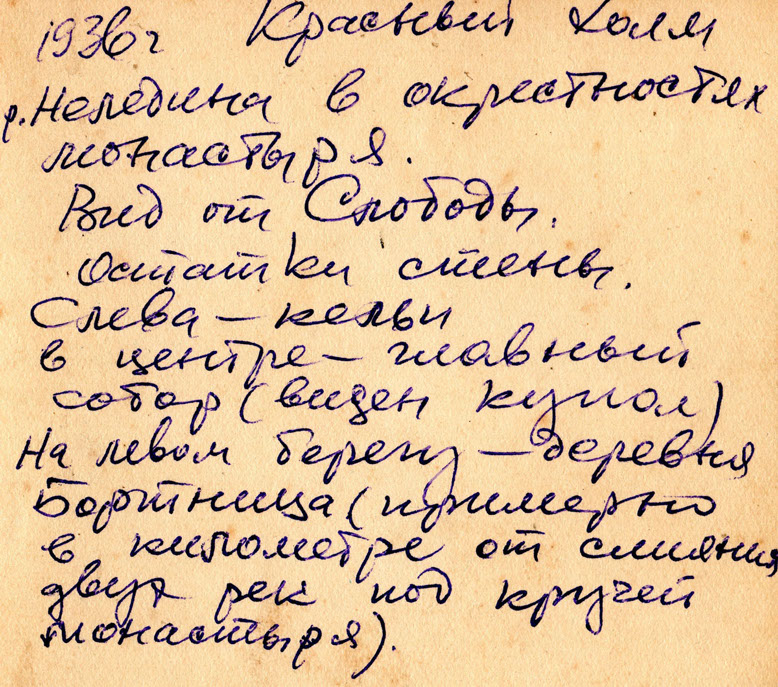 1936 г Красный Холм
р. Неледина в окрестностях
монастыря.
Вид от Слободы.
Остатки стены.
Слева – кельи
в центре – главный
собор (виден купол)
На левом берегу – деревня
Бортница (примерно
в километре от слияния
двух рек под кручей
монастыря).